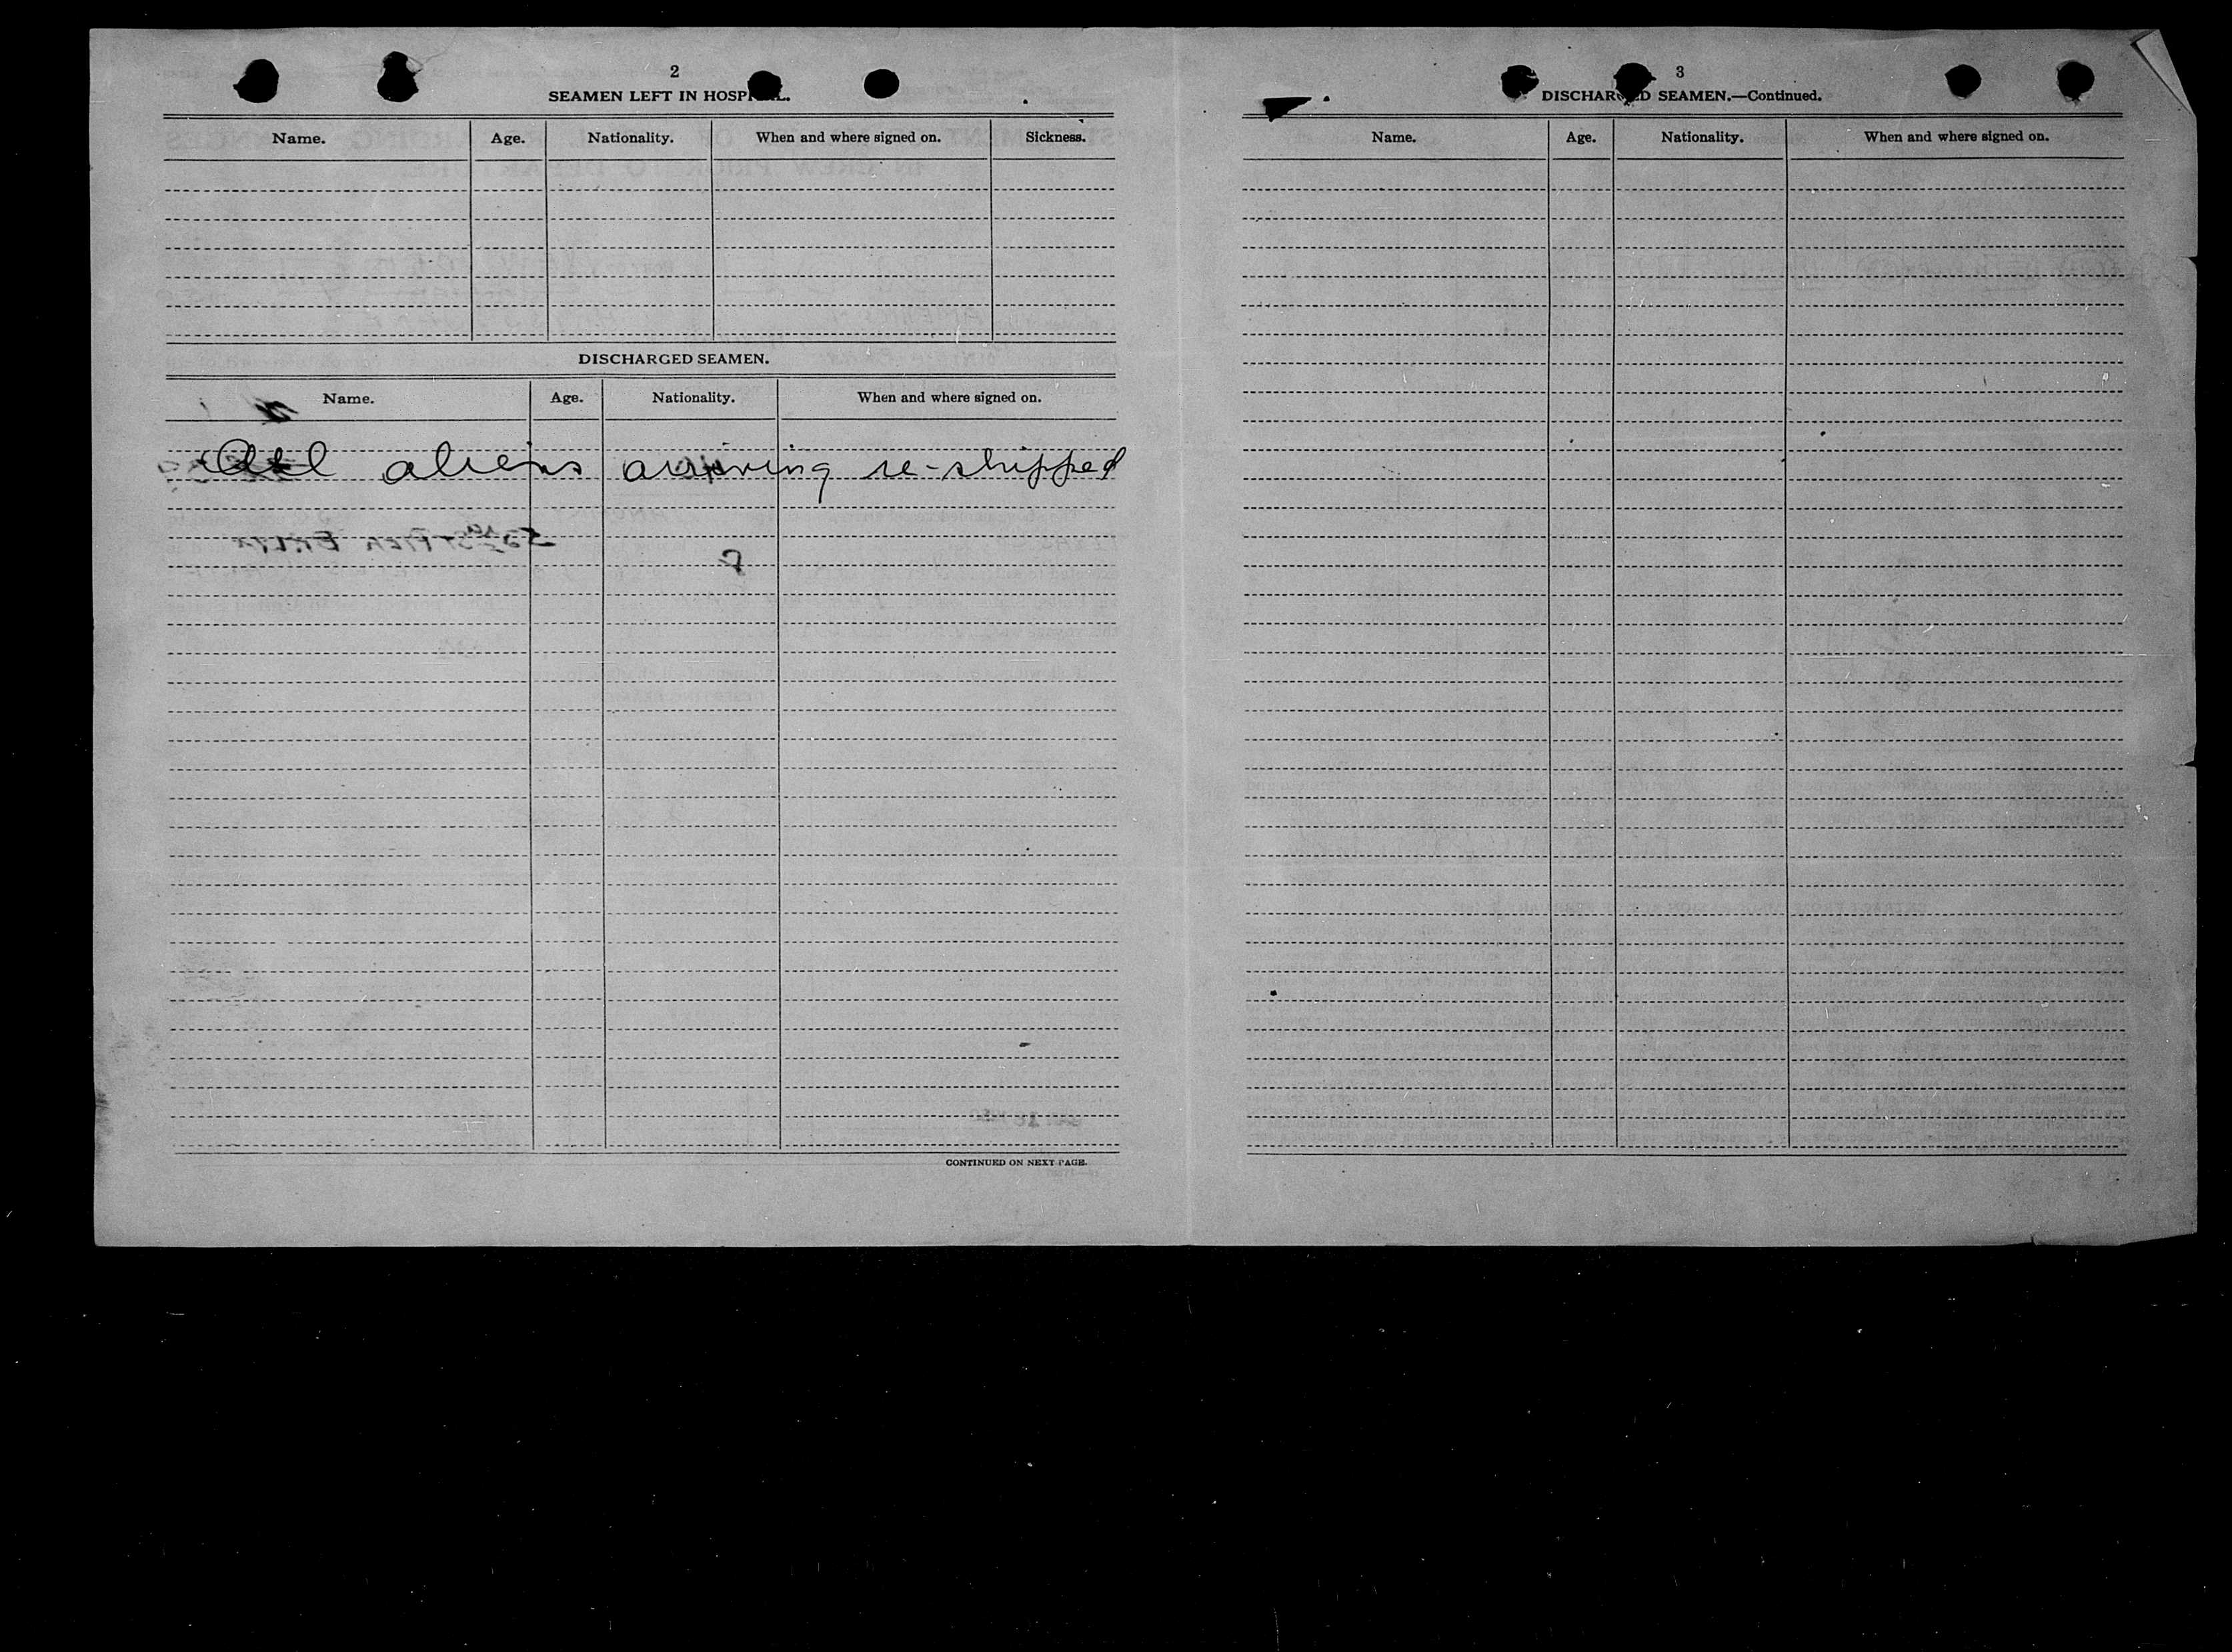 2
SEAMEN LEFT IN HOSPITAL.
Name. Age. Nationality. When and where signed on. Sickness.
DISCHARGED SEAMEN.
Name. Age. Nationality. When and where signed on.
All aliens arriving re-shipped
CONTINUED ON NEXT PAGE.
3
DISCHARGED SEAMEN.—Continued.
Name. Age. Nationality. When and where signed on.